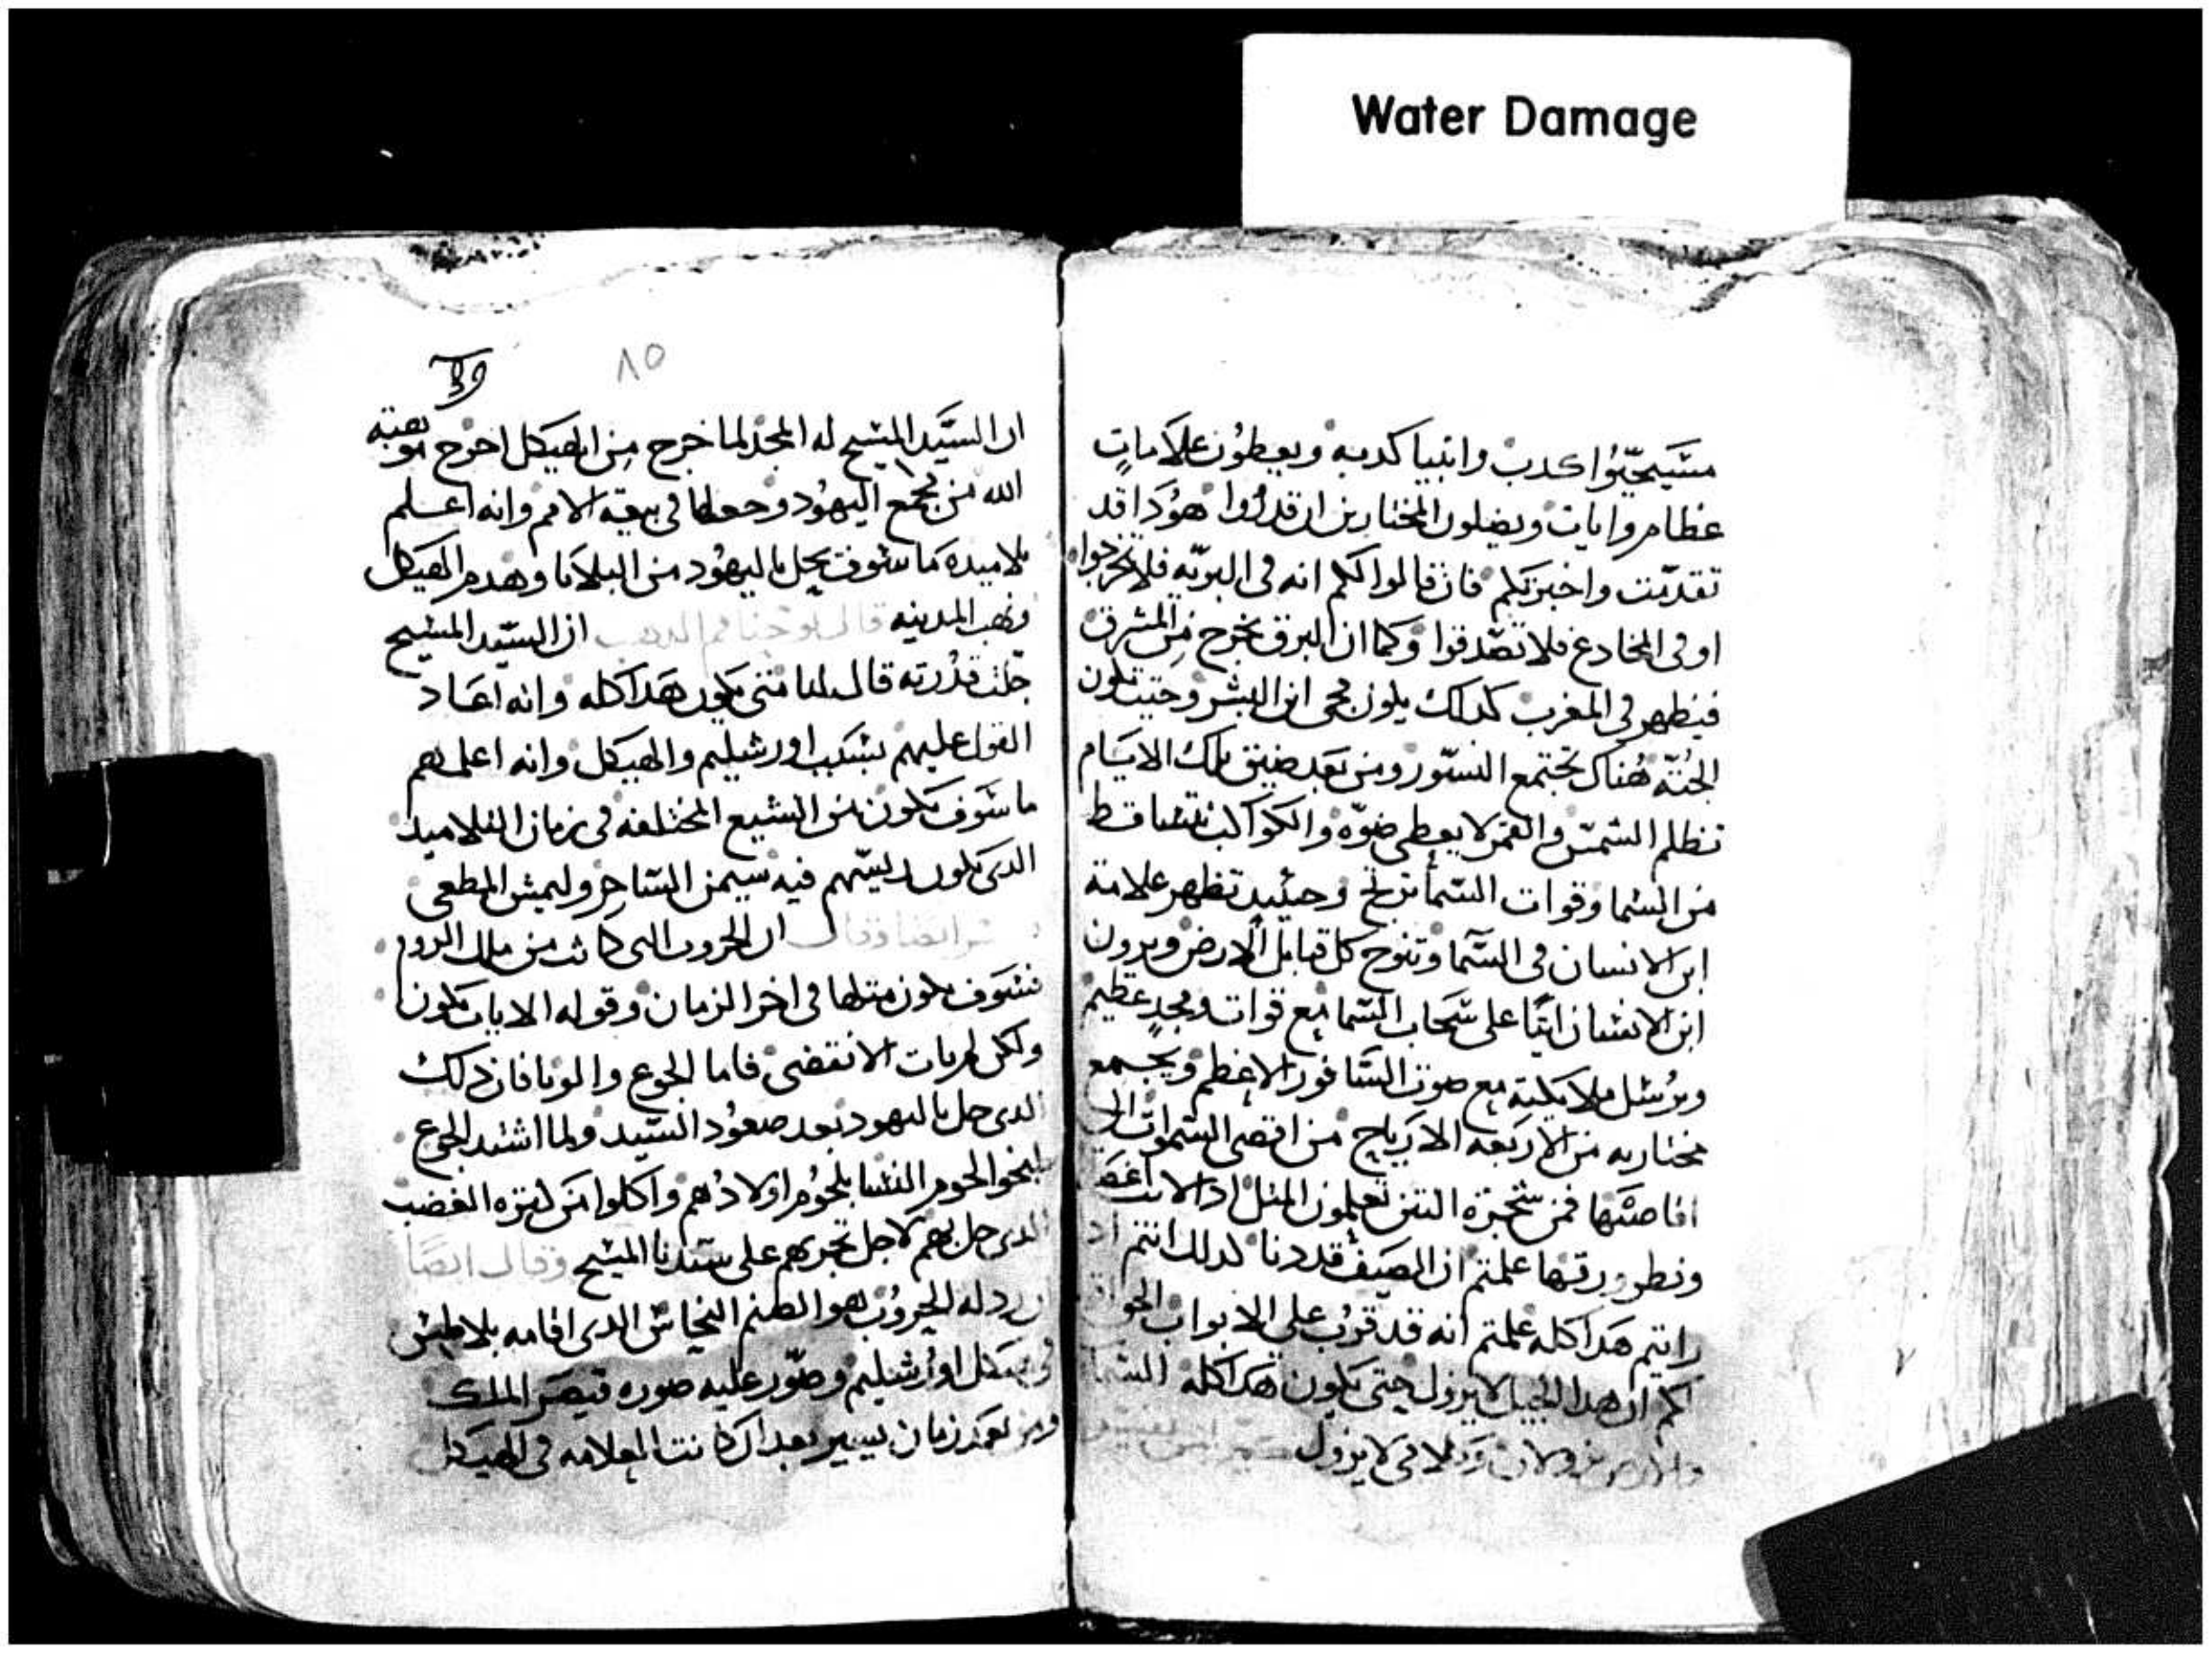 Water Damage
مسيحيّوا كدب وانبيا كدبه ويعطون علاماتٍ
عظام وايات ويضلون المختارين ان قدروا هودا قد
تقدمت واخبرتكم فان قالوا لكم انه فى البريّه فلا تخرجوا
او فى المخادع فلا تصّدقوا وكما ان البرق يخرج من المشرق
فيظهر في المغرب كدلك يكون مجى ابن البشر وحيت تكون
الجُثّه هُناك تجتمع النسّور ومن بَعد ضيق تلك الايَام
تظلم الشمس والقمر لا يعطى ضوّه والكواكب تتساقط
من السما وقوات السّما ترتج وحينيد تظهر علامة
ابن الانسان فى السّما وتنوح كل قبايل الارض ويرون
ابن الانسان اتيًا على سَحاب السّما مع قوات ومجدٍ عظيم
ويرُسل ملايكته مع صوت السَافور الاعظم ويجمع
مختاريه من الاربَعه الارياح من اقصى السّموات الى
اقاصيّها فمن شجرة التين تعلمون المثل ادا لانت
ورقها علمتم ان الصيَف قد دنا كدلك انتم اد
رايتم هَدا كله علمتم انه قد قرُب على الابواب الحق
لكم ان هدا الجيل لا يزول حتى يكون هَدا كله السما
والارض يزولان وكلامى لا يزول
٨٥
ان السيّد المسيح له المجد لما خرج من الهيكل اخرج موهبة
الله من مجمع اليهُود وجعلها فى بيعة الامم وانه اعلم
تلاميده مَا سَوف يحل باليهُود من البلايا وهدم الهيكل
ونهب المدينه قال يوحنا فم الدهب ان السيّد المسيح
جلت قدُرته قال لنا متى يكون هَدا كله وانه اعَاد
القول عليهم بسَبب اورشليم والهيكل وانه اعلمهم
ما سَوف يكون من الشيع المختلفه فى زمان التلاميد
الدى يكون رييسّهم فيه سيمن السّاحر وليمس المطغى
ايضا وقال ان الحروب التى كانت من ملك الروم
فسَوف يكون متلها فى اخر الزمان وقوله الايات يكون
ولكن لم يات الانقضى فاما الجوع والوبا فان دلك
الدى حل باليهود بَعد صعُود السّيد ولما اشتد الجوع
الحوم النسا بلحوُم اولادهُم واكلوا من كترة الغضب
الدى حل بهم لاجل تجريهم على سيّدنا المسيح وقال ايضًا
ان ردله الخروُب هو الصنم النحاس الدى اقامه بلاطس
فى هيكل اورُشليم وصّور عليه صوره قيصَر الملك
ومن بَعد زمان يسير بعد ان كانت العلامه فى الهيكل